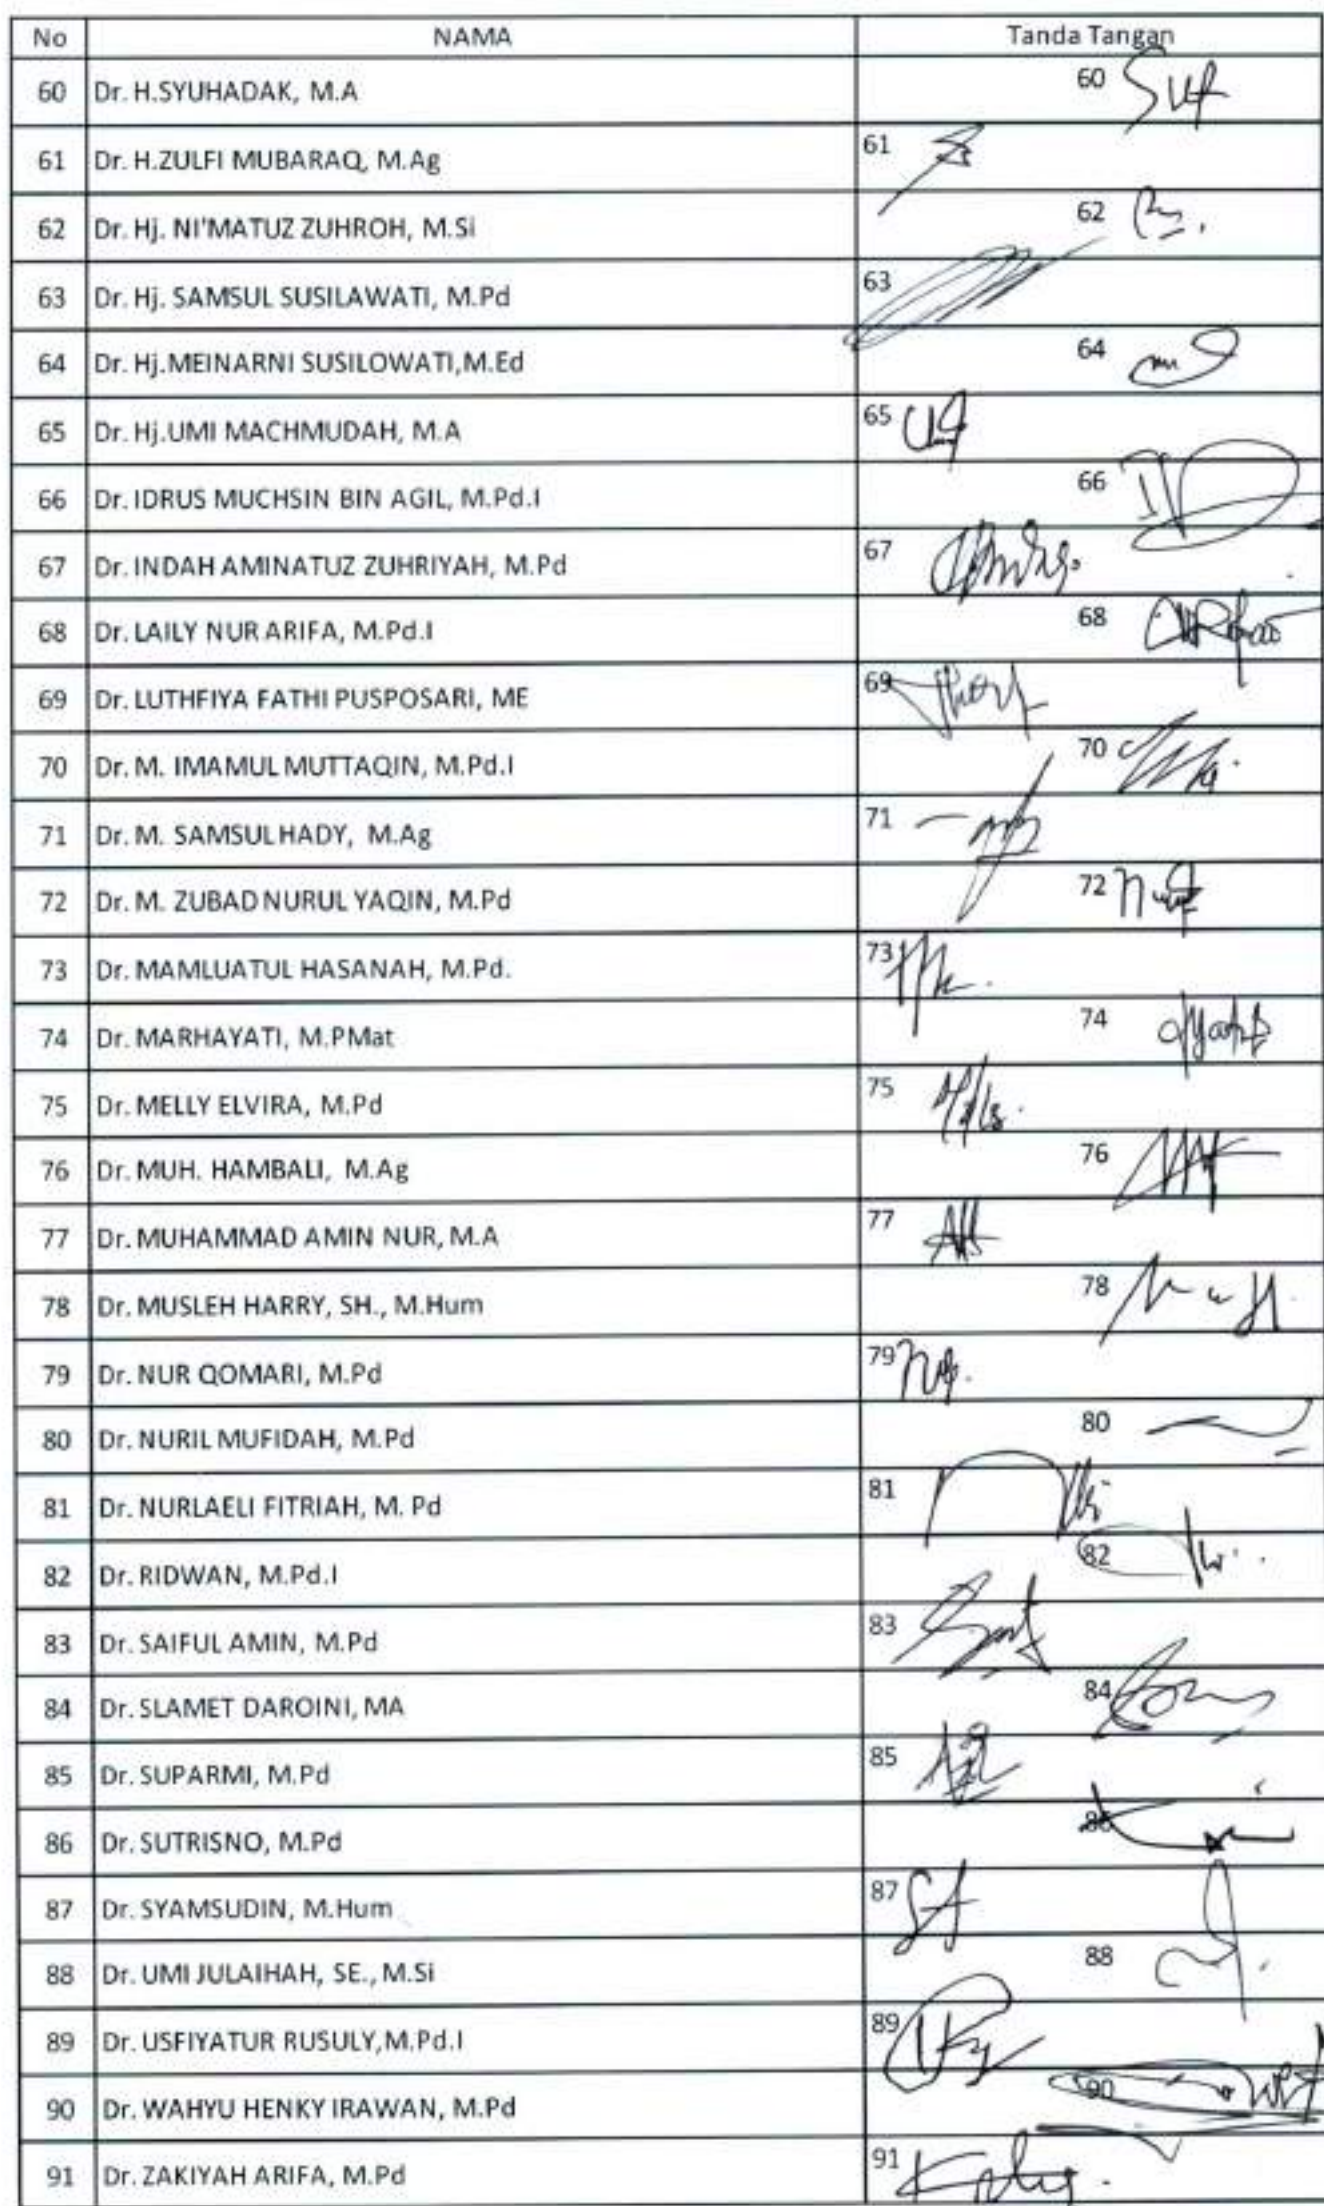 No NAMA Tanda Tangan
60 Dr. H.SYUHADAK, M.A 60
61 Dr. H.ZULFI MUBARAQ, M.Ag 61
62 Dr. Hj. NI'MATUZ ZUHROH, M.Si 62
63 Dr. Hj. SAMSUL SUSILAWATI, M.Pd 63
64 Dr. Hj.MEINARNI SUSILOWATI,M.Ed 64
65 Dr. Hj.UMI MACHMUDAH, M.A 65
66 Dr. IDRUS MUCHSIN BIN AGIL, M.Pd.I 66
67 Dr. INDAH AMINATUZ ZUHRIYAH, M.Pd 67
68 Dr. LAILY NUR ARIFA, M.Pd.I 68
69 Dr. LUTHFIYA FATHI PUSPOSARI, ME 69
70 Dr. M. IMAMUL MUTTAQIN, M.Pd.I 70
71 Dr. M. SAMSUL HADY, M.Ag 71
72 Dr. M. ZUBAD NURUL YAQIN, M.Pd 72
73 Dr. MAMLUATUL HASANAH, M.Pd. 73
74 Dr. MARHAYATI, M.PMat 74
75 Dr. MELLY ELVIRA, M.Pd 75
76 Dr. MUH. HAMBALI, M.Ag 76
77 Dr. MUHAMMAD AMIN NUR, M.A 77
78 Dr. MUSLEH HARRY, SH., M.Hum 78
79 Dr. NUR QOMARI, M.Pd 79
80 Dr. NURIL MUFIDAH, M.Pd 80
81 Dr. NURLAELI FITRIAH, M. Pd 81
82 Dr. RIDWAN, M.Pd.I 82
83 Dr. SAIFUL AMIN, M.Pd 83
84 Dr. SLAMET DAROINI, MA 84
85 Dr. SUPARMI, M.Pd 85
86 Dr. SUTRISNO, M.Pd 86
87 Dr. SYAMSUDIN, M.Hum 87
88 Dr. UMI JULAIHAH, SE., M.Si 88
89 Dr. USFIYATUR RUSULY,M.Pd.I 89
90 Dr. WAHYU HENKY IRAWAN, M.Pd 90
91 Dr. ZAKIYAH ARIFA, M.Pd 91